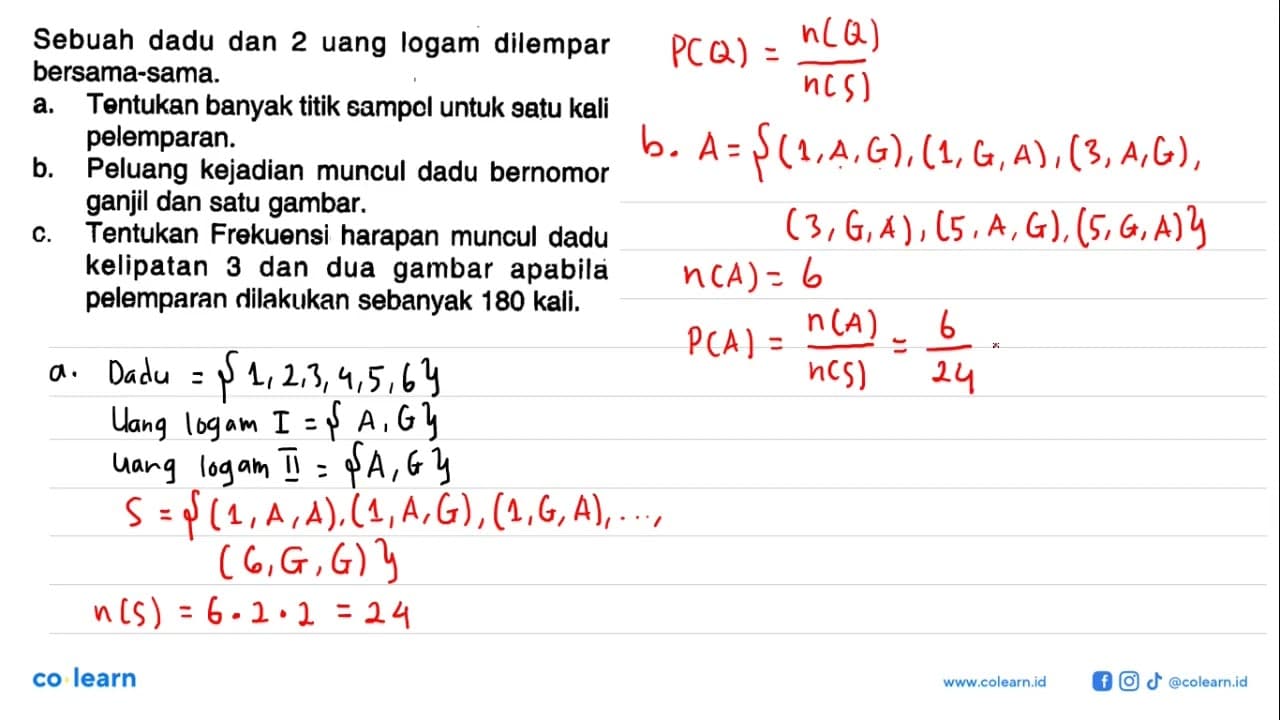 Sebuah dadu dan 2 uang logam dilempar
bersama-sama.
a. Tentukan banyak titik sampel untuk satu kali
pelemparan.
b. Peluang kejadian muncul dadu bernomor
ganjil dan satu gambar.
c. Tentukan Frekuensi harapan muncul dadu
kelipatan 3 dan dua gambar apabila
pelemparan dilakukan sebanyak 180 kali.
a. Dadu = {1, 2, 3, 4, 5, 6}
Uang logam I = {A, G}
Uang logam II = {A, G}
S = {(1, A, A), (1, A, G), (1, G, A), ...,
(6, G, G)}
n(S) = 6 . 2 . 2 = 24
P(Q) = n(Q) / n(S)
b. A = {(1, A, G), (1, G, A), (3, A, G),
(3, G, A), (5, A, G), (5, G, A)}
n(A) = 6
P(A) = n(A) / n(S) = 6 / 24
co learn
www.colearn.id
@colearn.id